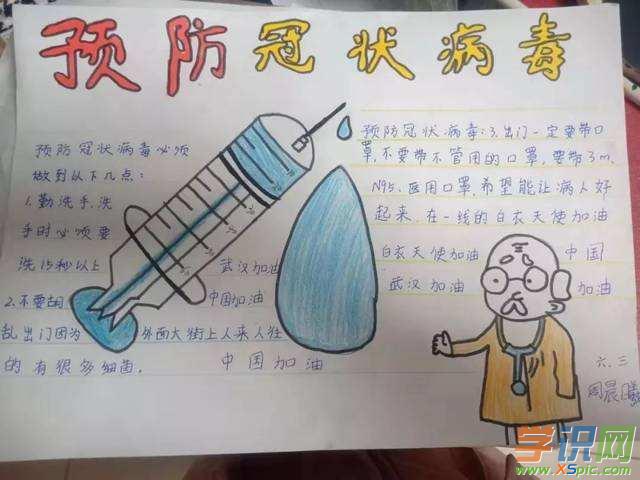 预防冠状病毒
预防冠状病毒必须
做到以下几点:
1.勤洗手,洗
手时必须要
洗15秒以上
武汉加油
2.不要胡
中国加油
乱出门因为
外面大街上人来人往
的有很多细菌。
中国加油
预防冠状病毒:3.出门一定要带口
罩,不要带不管用的口罩,要带3m、
N95、医用口罩,希望能让病人好
起来,在一线的白衣天使加油
白衣天使加油
中国
武汉加油
加油
六、三
周晨
学识网
www.XSpic.com